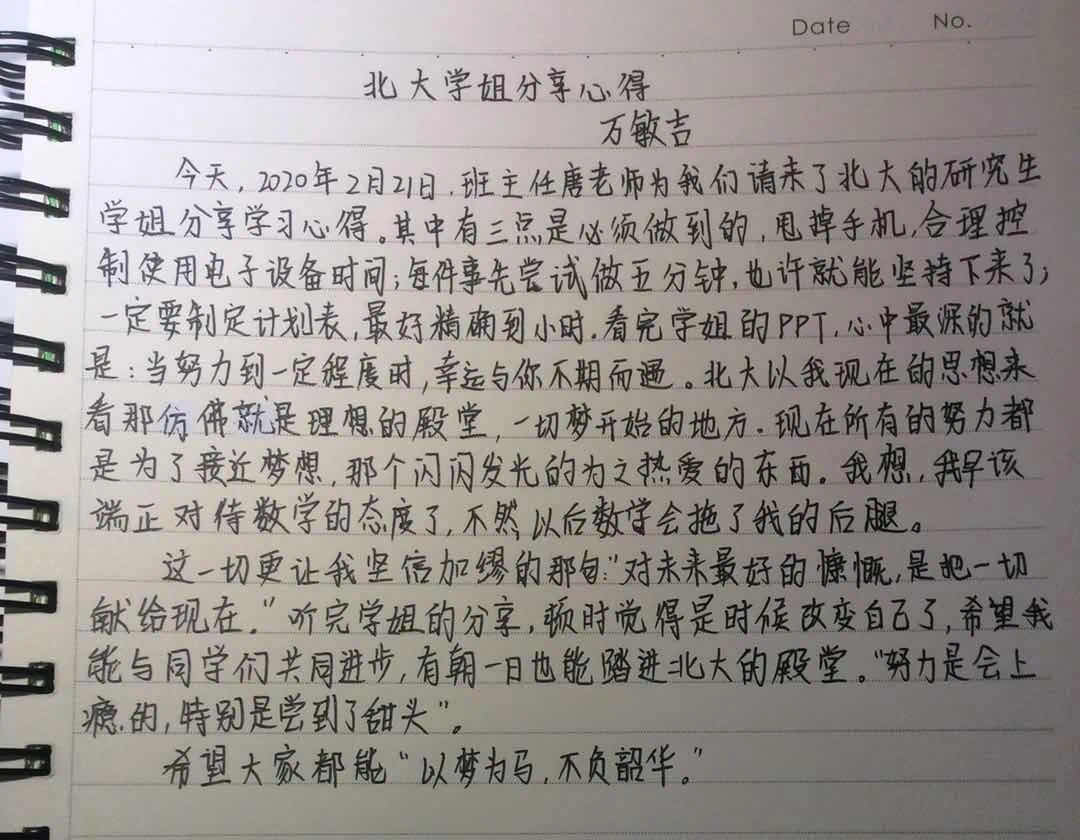 Date No.
北大学姐分享心得
万敏吉
今天,2020年2月21日,班主任唐老师为我们请来了北大的研究生
学姐分享学习心得。其中有三点是必须做到的,甩掉手机,合理控
制使用电子设备时间;每件事先尝试做五分钟,也许就能坚持下来了;
一定要制定计划表,最好精确到小时.看完学姐的PPT,心中最深的就
是:当努力到一定程度时,幸运与你不期而遇。北大以我现在的思想来
看那仿佛就是理想的殿堂,一切梦开始的地方.现在所有的努力都
是为了接近梦想,那个闪闪发光的为之热爱的东西。我想,我早该
端正对待数学的态度了,不然以后数学会拖了我的后腿。
这一切更让我坚信加缪的那句:“对未来最好的慷慨,是把一切
献给现在.”听完学姐的分享,顿时觉得是时候改变自己了,希望我
能与同学们共同进步,有朝一日也能踏进北大的殿堂。“努力是会上
瘾的,特别是尝到了甜头”。
希望大家都能“以梦为马,不负韶华。”